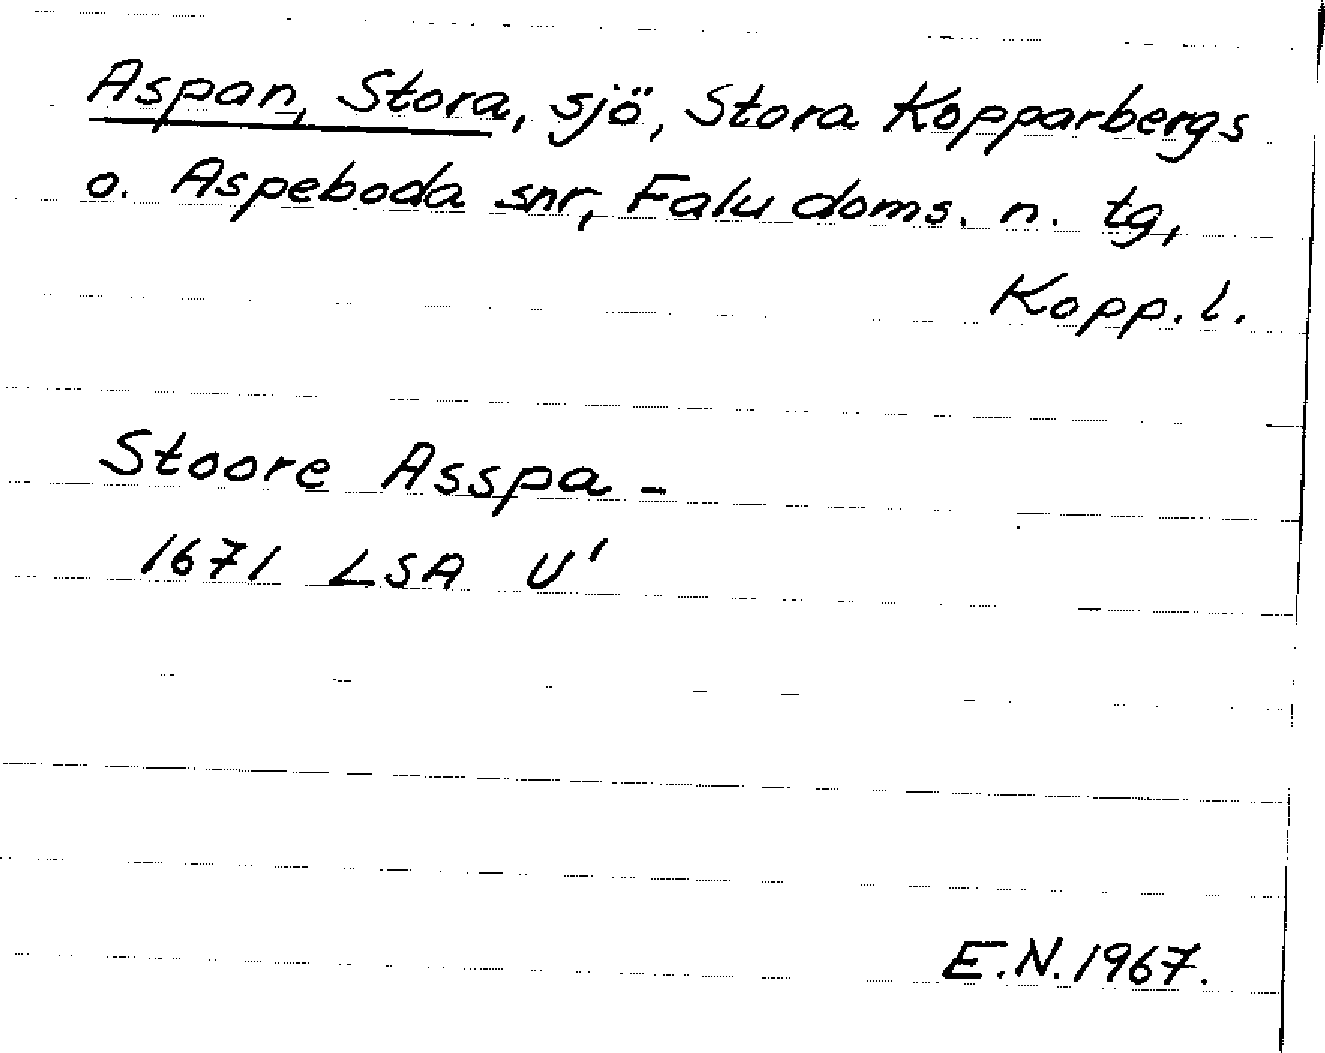 Aspan, Stora, sjö, Stora Kopparbergs
o. Aspeboda snr, Falu doms. n. tg,
Kopp. l.
Stoore Asspa -
1671 LSA U'
E.N. 1967.